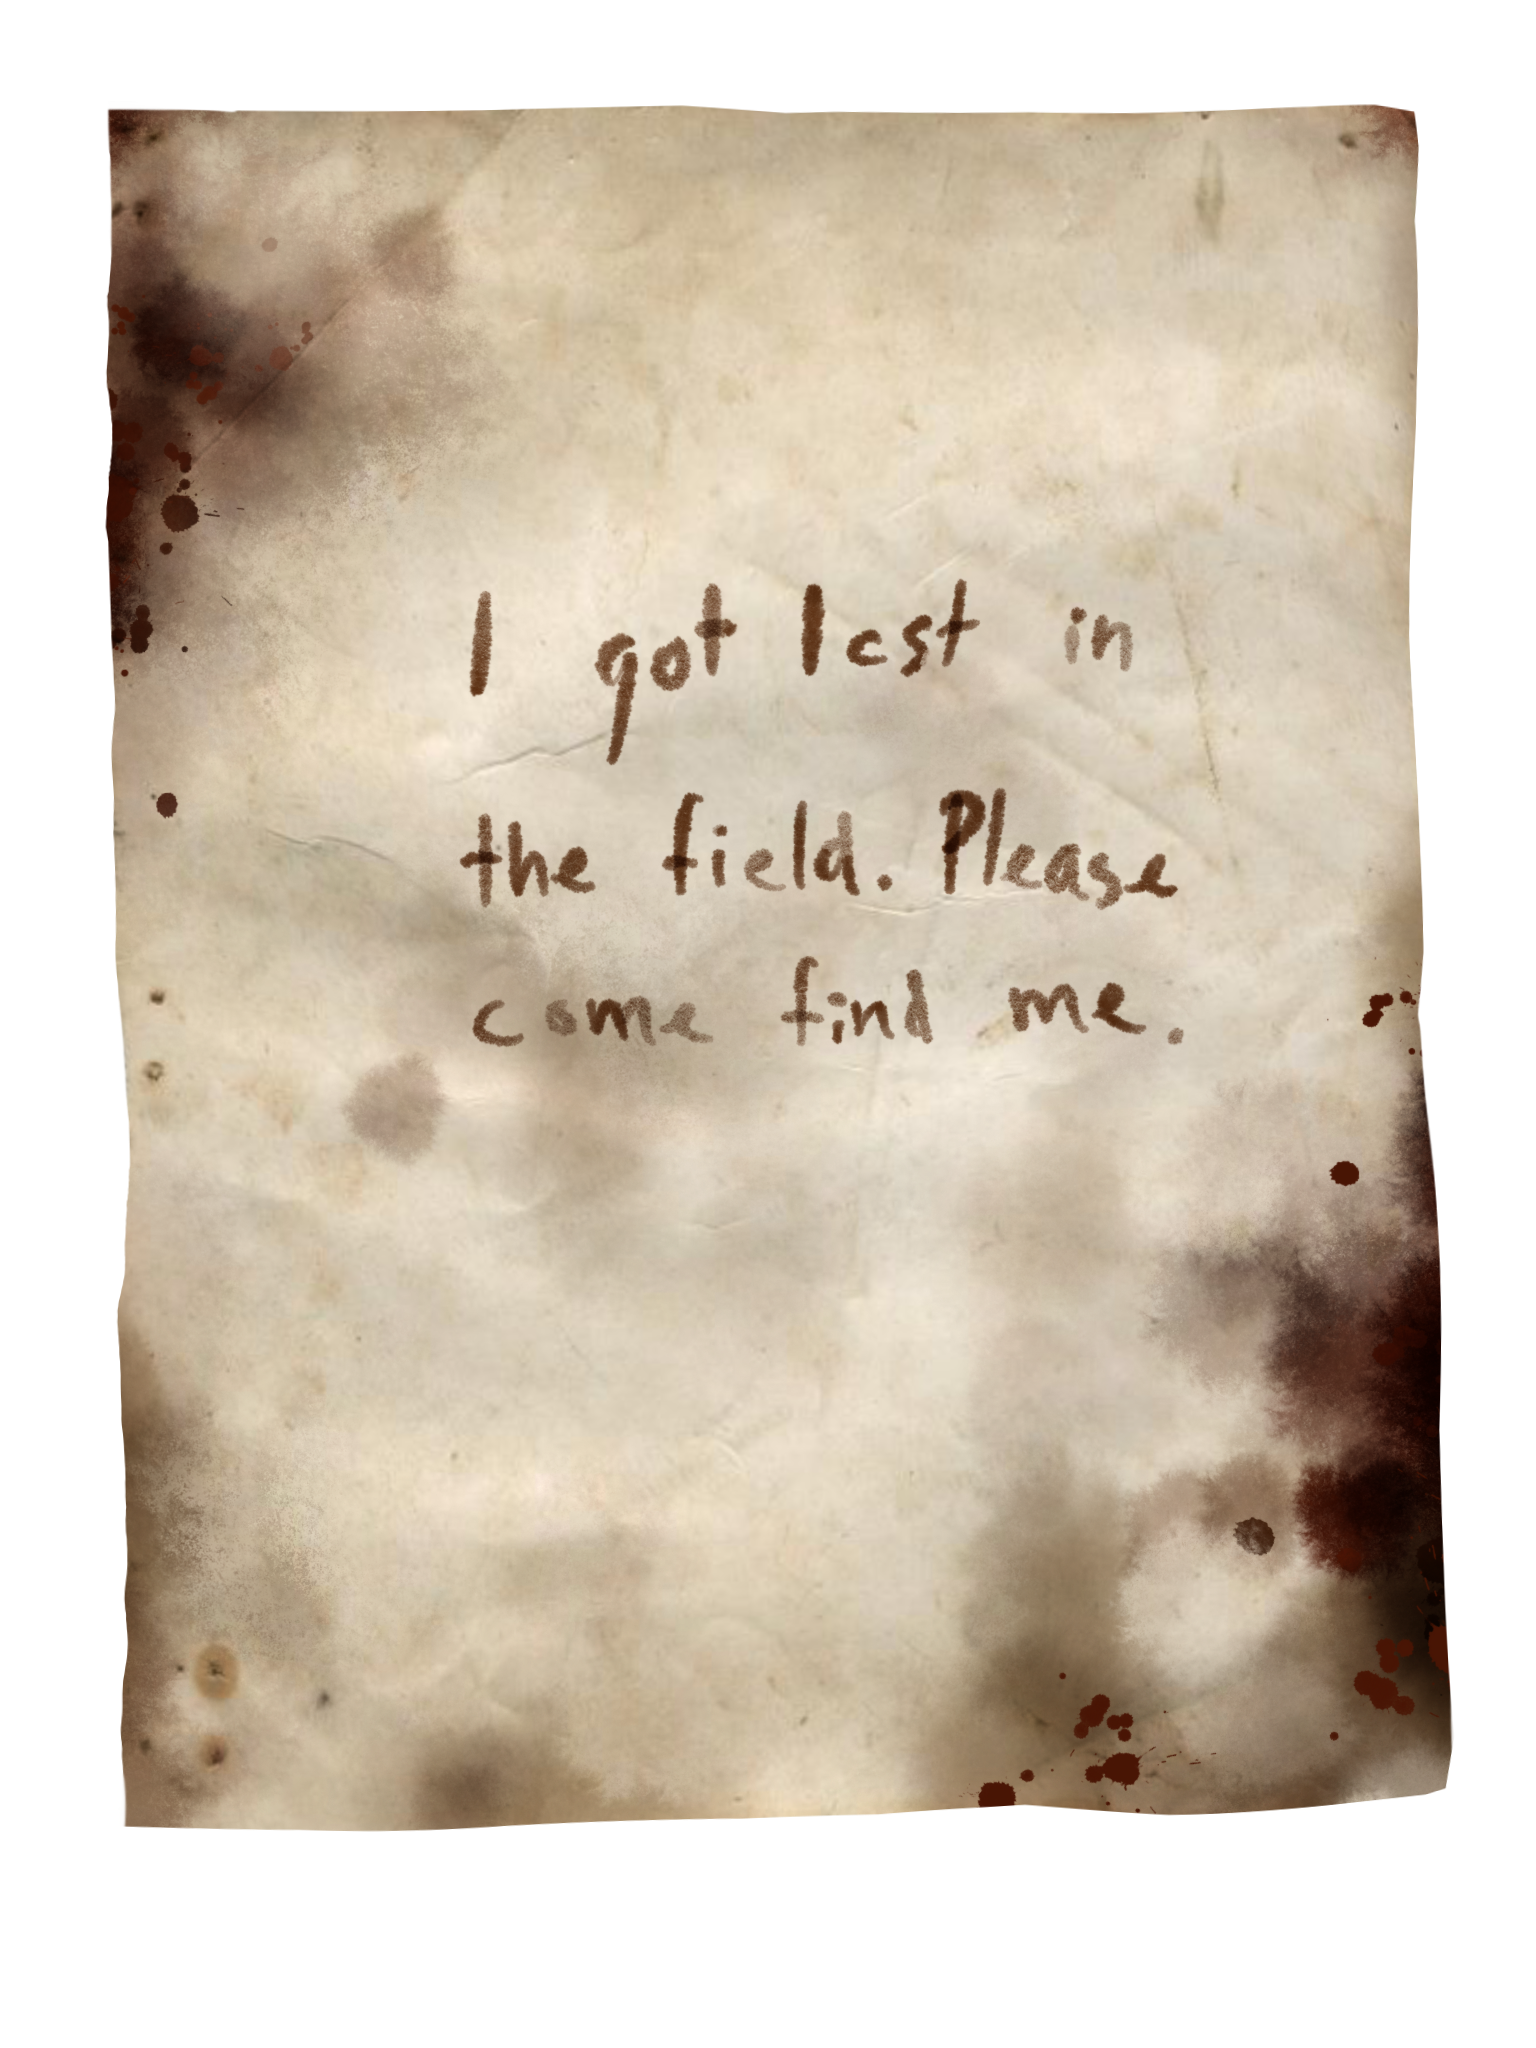 I got lost in
the field. Please
come find me.